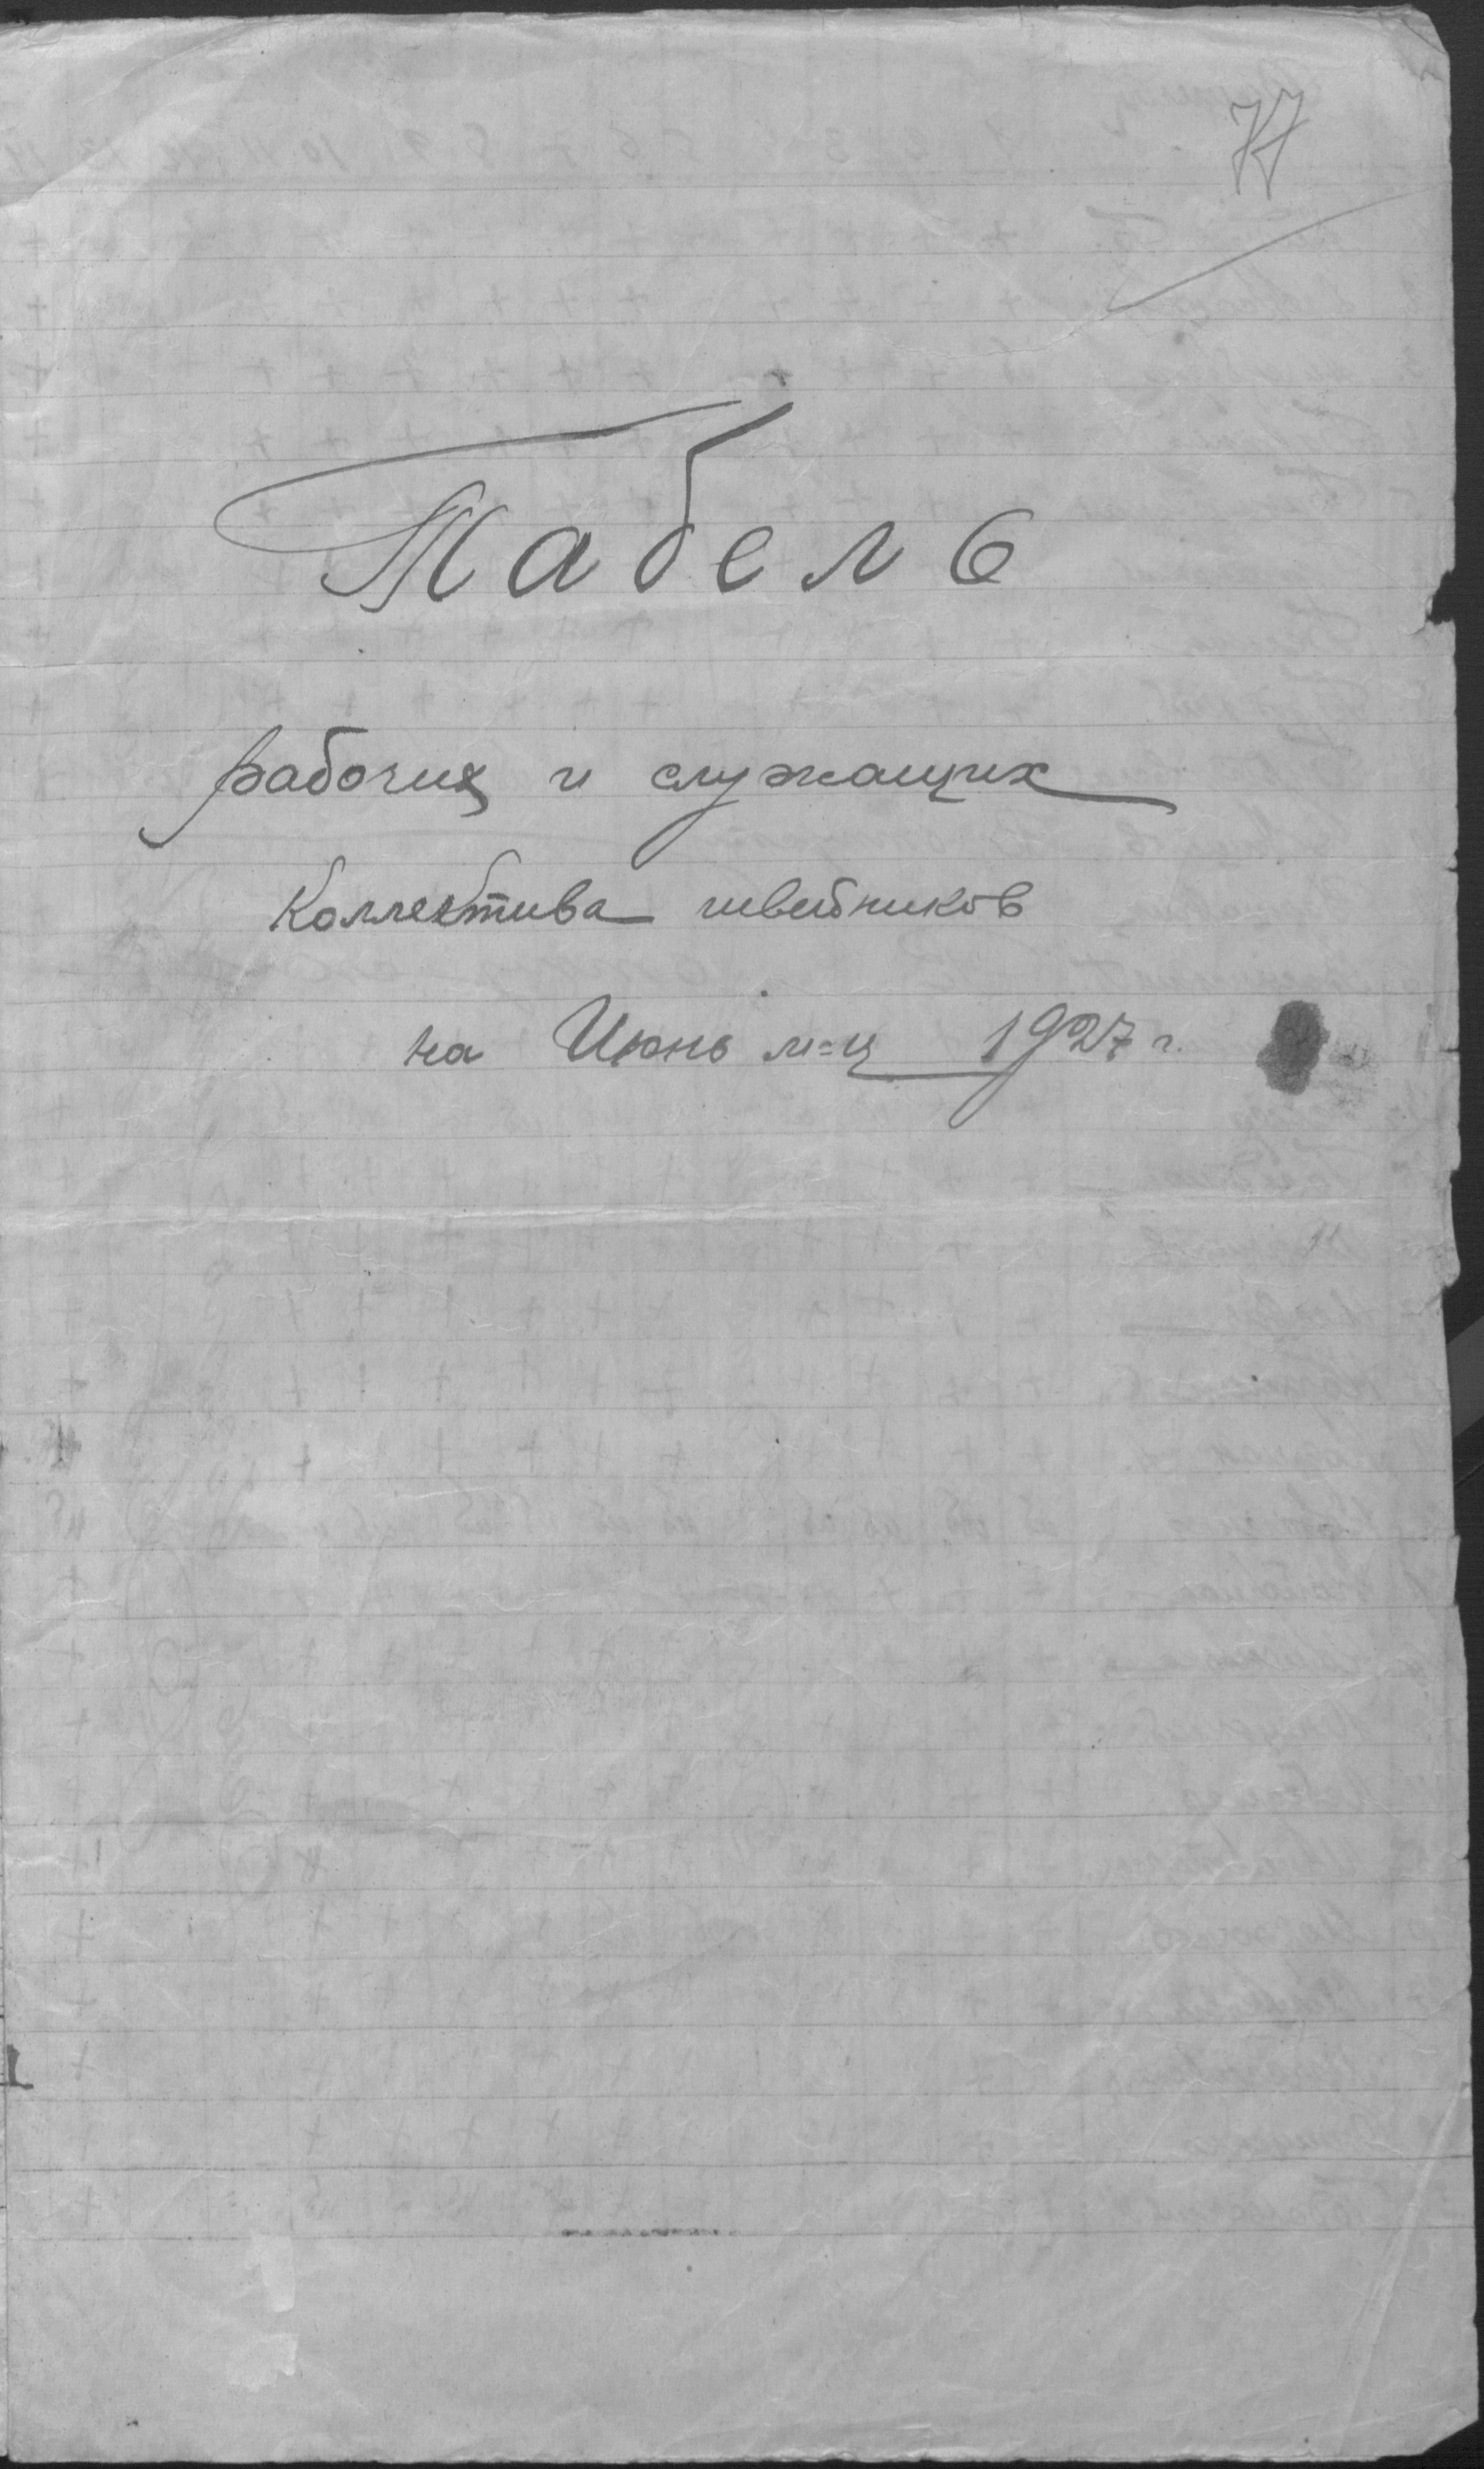 77
Табель
рабочих и служащих
Коллектива швейников
на Июнь м=ц 1927 г.